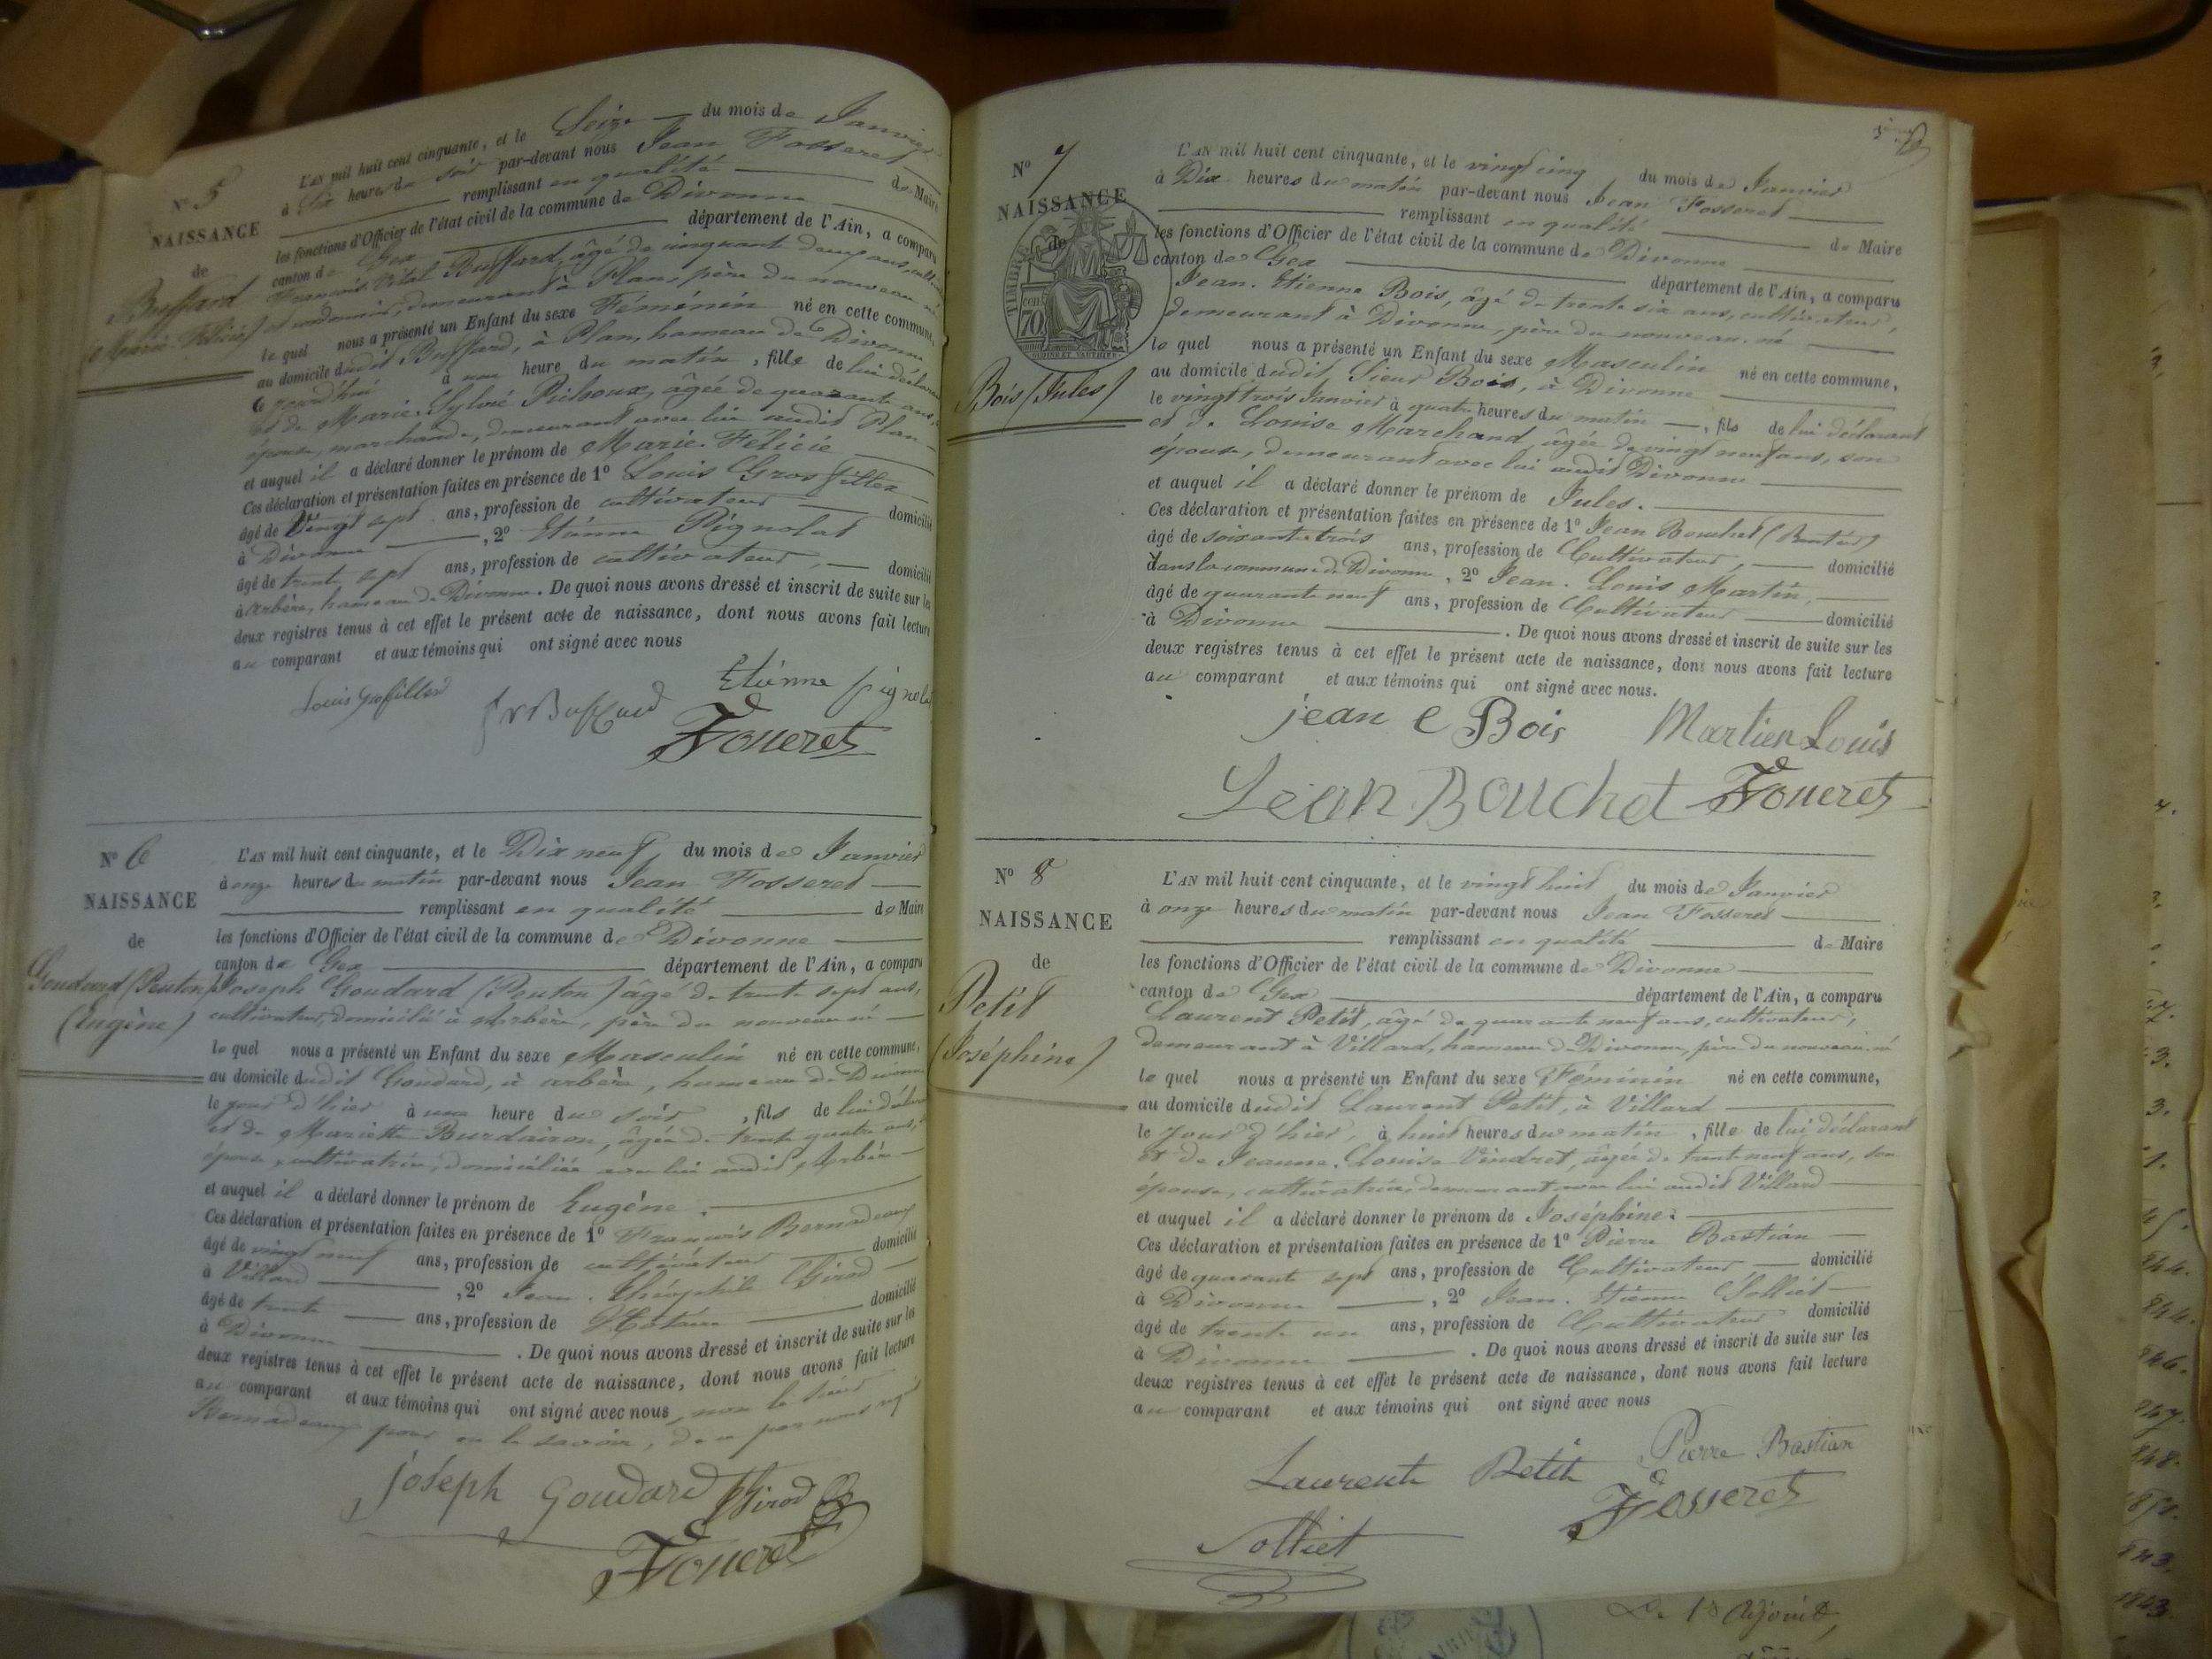 N° 5
NAISSANCE
de
Buffard
(Marie Félicie)
L'AN mil huit cent cinquante, et le Seize du mois de Janvier
à Six heures du soir par-devant nous Jean Fosseret
remplissant en qualité de Maire
les fonctions d'Officier de l'état civil de la commune de Divonne
canton de Gex département de l'Ain, a comparu
François Vital Buffard, âgé de cinquante deux ans,
demeurant à Plan, père du nouveau né
le quel nous a présenté un Enfant du sexe Féminin né en cette commune,
au domicile dudit Buffard, à Plan, hameau de Divonne
à une heure du matin, fille de lui déclarant
et de Marie Sylvie âgée de quarante ans,
épouse, marchande, demeurant avec lui audit Plan
et auquel il a déclaré donner le prénom de Marie Félicie
Ces déclaration et présentation faites en présence de 1° Louis Grosfillex
âgé de Vingt sept ans, profession de cultivateur domicilié
à Divonne, 2° Etienne Pignolat
âgé de trente sept ans, profession de cultivateur, domicilié
à Arbère, hameau de Divonne. De quoi nous avons dressé et inscrit de suite sur les
deux registres tenus à cet effet le présent acte de naissance, dont nous avons fait lecture
au comparant et aux témoins qui ont signé avec nous
Louis Grosfillex
Buffard
Etienne Pignolat
Fosseret
N° 6
NAISSANCE
de
Goudard (Ponton)
(Eugène)
L'AN mil huit cent cinquante, et le Dix neuf du mois de Janvier
à onze heures du matin par-devant nous Jean Fosseret
remplissant en qualité de Maire
les fonctions d'Officier de l'état civil de la commune de Divonne
canton de Gex département de l'Ain, a comparu
Joseph Goudard (Ponton) âgé de trente sept ans,
cultivateur, domicilié à Arbère, père du nouveau né
le quel nous a présenté un Enfant du sexe Masculin né en cette commune,
au domicile dudit Goudard, à arbère, hameau de Divonne
le jour d'hier à une heure du soir, fils de lui déclarant
et de Mariette Burdairon, âgée de trente quatre ans,
épouse, cultivatrice, domiciliée avec lui audit Arbère
et auquel il a déclaré donner le prénom de Eugène.
Ces déclaration et présentation faites en présence de 1° François Bernadeaux
âgé de vingt neuf ans, profession de cultivateur domicilié
à Villard, 2° Jean Théophile Girod
âgé de trente ans, profession de Notaire domicilié
à Divonne. De quoi nous avons dressé et inscrit de suite sur les
deux registres tenus à cet effet le présent acte de naissance, dont nous avons fait lecture
au comparant et aux témoins qui ont signé avec nous, non le sieur
Bernadeaux pour ne le savoir, de ce par nous
joseph Goudard Girod
Fosseret
N° 7
NAISSANCE
de
TIMBRE
70
Bois (Jules)
L'AN mil huit cent cinquante, et le vingt cinq du mois de Janvier
à Dix heures du matin par-devant nous Jean Fosseret
remplissant en qualité de Maire
les fonctions d'Officier de l'état civil de la commune de Divonne
canton de Gex département de l'Ain, a comparu
Jean. Etienne Bois, âgé de trente six ans, cultivateur,
demeurant à Divonne, père du nouveau né
le quel nous a présenté un Enfant du sexe Masculin né en cette commune,
au domicile dudit Sieur Bois, à Divonne
le vingt trois Janvier à quatre heures du matin, fils de lui déclarant
et de Louise Marchand, âgée de vingt neuf ans, son
épouse, demeurant avec lui audit Divonne
et auquel il a déclaré donner le prénom de Jules.
Ces déclaration et présentation faites en présence de 1° Jean Bouchet
âgé de soixante trois ans, profession de Cultivateur, domicilié
dans la commune de Divonne, 2° Jean. Louis Martin,
âgé de quarante neuf ans, profession de Cultivateur domicilié
à Divonne. De quoi nous avons dressé et inscrit de suite sur les
deux registres tenus à cet effet le présent acte de naissance, dont nous avons fait lecture
au comparant et aux témoins qui ont signé avec nous.
jean e Bois Martien Louis
Jean Bouchet Fosseret
N° 8
NAISSANCE
de
Petit
(Joséphine)
L'AN mil huit cent cinquante, et le vingt huit du mois de Janvier
à onze heures du matin par-devant nous Jean Fosseret
remplissant en qualité de Maire
les fonctions d'Officier de l'état civil de la commune de Divonne
canton de Gex département de l'Ain, a comparu
Laurent Petit, âgé de quarante neuf ans, cultivateur,
demeurant à Villard, hameau de Divonne, père du nouveau né
le quel nous a présenté un Enfant du sexe Féminin né en cette commune,
au domicile dudit Laurent Petit, à Villard
le Jour d'hier, à huit heures du matin, fille de lui déclarant
et de Jeanne. Louise Vindret, âgée de trente neuf ans, son
épouse, cultivatrice, demeurant avec lui audit Villard
et auquel il a déclaré donner le prénom de Joséphine.
Ces déclaration et présentation faites en présence de 1° Pierre Bastian
âgé de quarante sept ans, profession de Cultivateur domicilié
à Divonne, 2° Jean. Etienne Solliet
âgé de trente un ans, profession de Cultivateur domicilié
à Divonne. De quoi nous avons dressé et inscrit de suite sur les
deux registres tenus à cet effet le présent acte de naissance, dont nous avons fait lecture
au comparant et aux témoins qui ont signé avec nous
Laurent Petit Pierre Bastian
Fosseret
Solliet